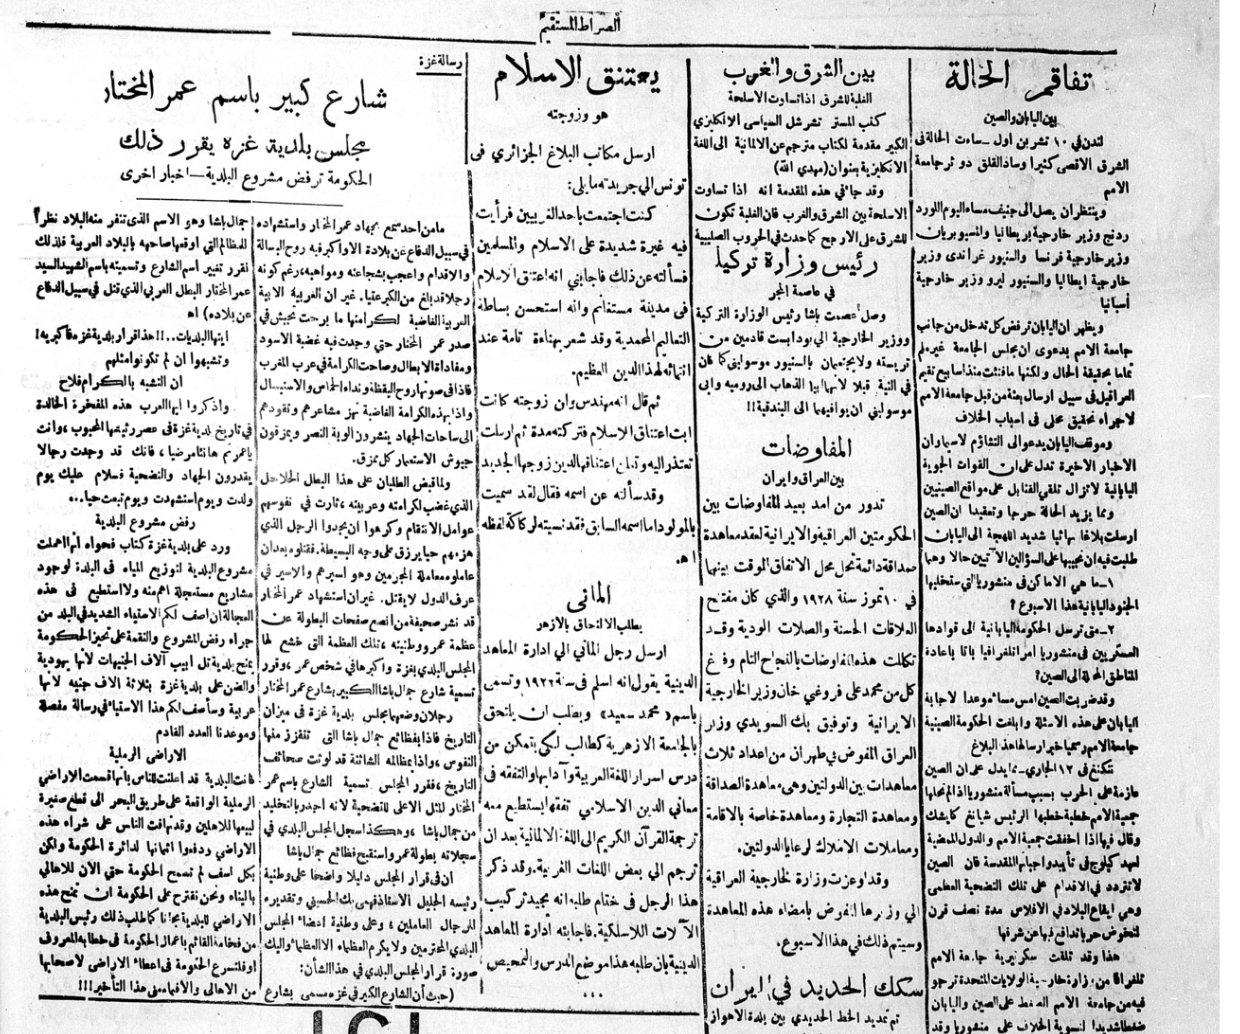 الصراط المستقيم
تفاقم الحالة
بين اليابان والصين
لندن في ١٠ تشرين اول ـ ساءت الحالة في
الشرق الاقصى كثيرا وساد القلق دوائر جامعة
الامم
وينتظران يصل الى جنيف مساء اليوم اللورد
ردنج وزير خارجية بريطانيا والمسيو بريان
وزير خارجية فرنسا والسنيور غراندى وزير
خارجية ايطاليا والسنيور ليرو وزير خارجية
أسبانيا
ويظهر ان اليابان ترفض كل تدخل من جانب
جامعة الامم بدعوى ان مجلس الجامعة غير ملم
تماما بحقيقة الحال ولكنها مافتئت منذ اسابيع تقيم
العراقيل فى سبيل ارسال بعثة من قبل جامعة الامم
لاجراء تحقيق محلى فى اسباب الخلاف
وموقف اليابان يدعو الى التشاؤم لاسيما وان
الاخبار الاخيرة تدل على ان القوات الجوية
اليابانية لا تزال تلقي القنابل على مواقع الصينيين
ومما يزيد الحالة حرجا وتعقيدا ان الصين
ارسلت بلاغا نهائيا شديد اللهجة الى اليابان
طلبت فيه ان تجيبها على السؤالين الآتيين حالا وهما
١ـ ما هي الاماكن فى منشوريا التي ستخليها
الجنود اليابانية هذا الاسبوع ؟
٢ـ متى ترسل الحكومة اليابانية الى قوادها
العسكريين فى منشوريا امرا تلغرافيا باتا باعادة
المناطق المحتلة الى الصين؟
وقد ضربت الصين امس مساء موعدا لاجابة
اليابان على هذه الاسئلة وابلغت الحكومة الصينية
جامعة الامم رسميا خبر ارسالها هذ البلاغ
نتكنغ فى ١٢ الجاري ـ مما يدل على ان الصين
عازمة على الحرب بسبب مسألة منشوريا اذا لم تحلها
جمعية الامم خطبة خطبها الرئيس شيانغ كايشك
وقال فيها اذا اخفقت جمعية الامم والدول الممضية
لعهد كيلوج فى تأييد واجباتها المقدسة فان الصين
لا تتردد في الاقدام على تلك التضحية العظمى
وهي ايقاع البلاد في الافلاس مدة نصف قرن
لتخوض حربا تدافع فيها عن شرفها
هذا وقد تلقت سكرتيرية جامعة الامم
تلغرافا من وزارة خارجية الولايات المتحدة ترجو
فيه من جامعة الامم الضغط على الصين واليابان
ضغطا شديدا لتسوية الخلاف على منشوريا وقد
بين الشرق والغرب
الغلبة للشرق اذا تساوت الاسلحة
كتب المستر تشرشل السياسى الانكليزي
الكبير مقدمة لكتاب مترجم عن الالمانية الى اللغة
الانكليزية بعنوان (مهدي الله)
وقد جاء في هذه المقدمة انه اذا تساوت
الاسلحة بين الشرق والغرب فان الغلبة تكون
للشرق على الارجح كما حدث في الحروب الصليبية
رئيس وزارة تركيا
في عاصمة المجر
وصل عصمت باشا رئيس الوزارة التركية
ووزير الخارجية الى بودابست قادمين من
تريستة ولا يجتمعان بالسنيور موسوليني كما كان
في النية قبلا لانهما ابيا الذهاب الى روميه وابى
موسوليني ان يوافيهما الى البندقية !!
المفاوضات
بين العراق وايران
تدور من امد بعيد المفاوضات بين
الحكومتين العراقية والايرانية لعقد معاهدة
صداقة دائمة تحل محل الاتفاق الموقت بينهما
في ١٠ تموز سنة ١٩٢٨ والذي كان مفتتح
العلاقات الحسنة والصلات الودية وقد
تكللت هذه المفاوضات بالنجاح التام وفرغ
كل من محمد على فروغي خان وزير الخارجية
الايرانية وتوفيق بك السويدي وزير
العراق المفوض في طهران من اعداد ثلاث
معاهدات بين الدولتين وهى معاهدة الصداقة
ومعاهدة التجارة ومعاهدة خاصة بالاقامة
ومعاملات الاملاك لرعايا الدولتين.
وقد اوعزت وزارة الخارجية العراقية
الى وزيرها المفوض بامضاء هذه المعاهدة
وسيتم ذلك في هذا الاسبوع.
سكك الحديد في ايران
تم تمديد الخط الحديدي بين بلدة الاهواز
يعتنق الاسلام
هو وزوجته
ارسل مكاتب البلاغ الجزائري فى
تونس الى جريدته مايلى:
كنت اجتمعت باحد الغربيين فرأيت
فيه غيرة شديدة على الاسلام والمسلمين
فسألته عن ذلك فاجابني انه اعتنق الاسلام
فى مدينة مستغانم وانه استحسن بساطة
التعاليم المحمدية وقد شعر بهناءة تامة عند
انتمائه لهذا الدين العظيم.
ثم قال انه مهندس وان زوجته كانت
ابت اعتناق الاسلام فتركته مدة ثم ارسلت
تعتذر اليه وتعلن اعتناقها لدين زوجها الجديد
وقد سألته عن اسمه فقال لقد سميت
بالمولود اما اسمه السابق فقد نسيته لركاكة لفظه
ا ه.
المانى
يطلب الالتحاق بالازهر
ارسل رجل المانى الى ادارة المعاهد
الدينية يقول انه اسلم فى سنة ١٩٢٢ وتسمى
باسم «محمد سعيد» ويطلب ان يلتحق
بالجامعة الازهرية كطالب لكي يتمكن من
درس اسرار اللغة العربية وآدابها والتفقه فى
معاني الدين الاسلامي تفقها يستطيع معه
ترجمة القرآن الكريم الى اللغة الالمانية بعد ان
ترجم الى بعض اللغات الغربية. وقد ذكر
هذا الرجل فى ختام طلبه انه يجيد تركيب
الآلات اللاسلكية. فاجابته ادارة المعاهد
الدينية بان طلبه هذا موضع الدرس والتمحيص
...
رسالة غزة
شارع كبير باسم عمر المختار
مجلس بلدية غزه يقرر ذلك
الحكومة ترفض مشروع البلدية ـ اخبار اخرى
مامن احد سمع بجهاد عمر المختار واستشهاده
في سبيل الدفاع عن بلاده الا واكبر فيه روح البسالة
والاقدام واعجب بشجاعته ومواهبه، رغم كونه
رجلا قد بلغ من الكبر عتيا. غير ان العربية الابية
العربية الغاضبة لكرامتها ما برحت تجيش في
صدر عمر المختار حتى وجدت فيه غضبة الاسود
ومفاداة الابطال وصاحت الكرامة في عرب المغرب
فاذا فى صوتها روح اليقظة ونداء الحماس والاستبسال
واذا بهذه الكرامة الغاضبة تهز مشاعرهم وتقودهم
الى ساحات الجهاد ينشرون الوية النصر ويمزقون
جيوش الاستعمار كل ممزق.
ولما قبض الطليان على هذا البطل الحلاحل
الذي غضب لكرامته وعربيته ، ثارت في نفوسهم
عوامل الانتقام وكرهوا ان يجدوا الرجل الذي
هزمهم حيا يرزق على وجه البسيطة. فقتلوه بعد ان
عاملوه معاملة المجرمين وهو اسيرهم والاسير في
عرف الدول لا يقتل. غير ان استشهاد عمر المختار
قد نشر صحيفة من انصع صفحات البطولة عن
عظمة عمر ووطنيته ، تلك العظمة التى خشع لها
المجلس البلدي بغزة واكبرها في شخص عمر ، وقرر
تسمية شارع جمال باشا الكبير بشارع عمر المختار
رجلان وضعهما مجلس بلدية غزة فى ميزان
التاريخ فاذا بفظائع جمال باشا التى تتقزز منها
النفوس ، واذا بمظالمه الشائنة قد لوثت صحائف
التاريخ ، فقرر المجلس تسمية الشارع باسم عمر
المختار المثل الاعلى للتضحية لانه اجدر بالتخليد
من جمال باشا ، وهكذا سجل المجلس البلدي في
سجلاته بطولة عمر واستقبح فظائع جمال باشا
ان فى قرار المجلس دليلا واضحا على وطنية
رئيسه الجليل الاستاذ فهمى بك الحسيني وتقديره
للرجال العاملين ، وعلى وطنية اعضاء المجلس
البلدي المحترمين ولا يكرم العظماء الا العظماء واليك
صورة قرار المجلس البلدي في هذا الشأن :
(حيث أن الشارع الكبير فى غزه مسمى بشارع
جمال باشا وهو الاسم الذى تنفر منه البلاد نظراً
للمظالم التي اوقعها صاحبه بالبلاد العربية فلذلك
نقرر تغيير اسم الشارع وتسميته باسم الشهيد السيد
عمر المختار البطل العربي الذي قتل في سبيل الدفاع
عن بلاده) اه
ايتها البلديات..!! هذا قرار بلدية غزة فأكبريه!
وتشبهوا ان لم تكونوا مثلهم
ان التشبه بالكرام فلاح
واذكروا ايها العرب هذه المفخرة الخالدة
في تاريخ بلدية غزة فى عصر رئيسها المحبوب ، وانت
ياعمر نم هانئا مرضيا ، فانك قد وجدت رجالا
يقدرون الجهاد والتضحية فسلام عليك يوم
ولدت ويوم استشهدت ويوم تبعث حيا..
رفض مشروع البلدية
ورد على بلدية غزة كتاب فحواه انها اهملت
مشروع البلدية لتوزيع المياه فى البلدة لوجود
مشاريع مستعجلة اهم منه ولا استطيع فى هذه
العجالة ان اصف لكم الاستياء الشديد فى البلد من
جراء رفض المشروع والنقمة على تحيز الحكومة
بمنح بلدية تل ابيب آلاف الجنيهات لانها يهودية
والضن على بلدية غزة بثلاثة الاف جنيه لانها
عربية وسأصف لكم هذا الاستياء في رسالة مفصلة
وموعدنا العدد القادم
الاراضى الرملية
كانت البلدية قد اعلنت للناس بانها قسمت الاراضي
الرملية الواقعة على طريق البحر الى قطع صغيرة
لبيعها للاهلين وقد تهافت الناس على شراء هذه
الاراضي ودفعوا اثمانها لدائرة الحكومة ولكن
بكل اسف لم تسمح الحكومة حتى الآن للاهالي
بالبناء ونحن نقترح على الحكومة ان تمنح هذه
الاراضي للبلدية مجانا كما طلب ذلك رئيس البلدية
من فخامة القائم باعمال الحكومة فى خطابه المعروف
اوفلتسرع الحكومة فى اعطاء الاراضى لاصحابها
من الاهالى والا فما معنى هذا التأخير !!!